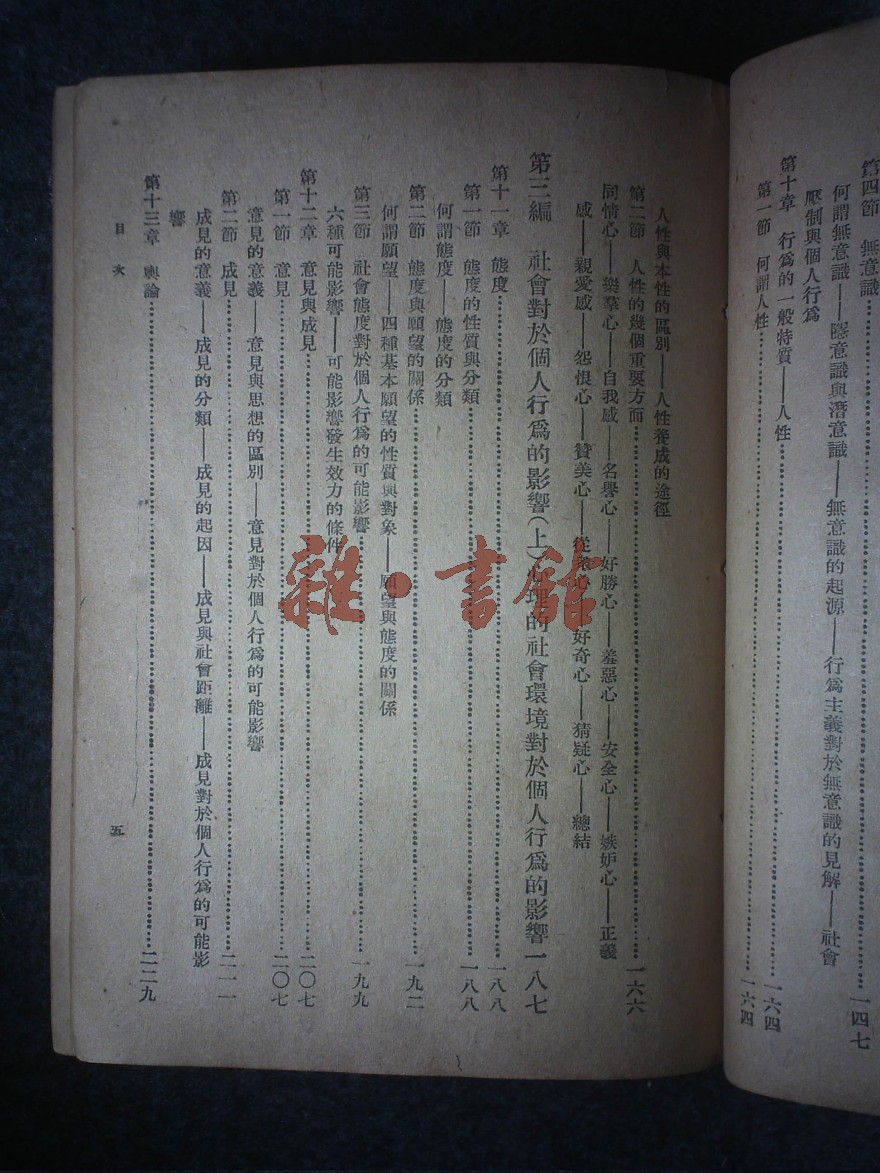 第四節　無意識……一四七
何謂無意識——隱意識與潛意識——無意識的起源——行爲主義對於無意識的見解——社會
壓制與個人行爲
第十章　行爲的一般特質——人性……一六四
第一節　何謂人性……一六四
人性與本性的區別——人性養成的途徑
第二節　人性的幾個重要方面……一六六
同情心——樂羣心——自我感——名譽心——好勝心——羞惡心——安全心——嫉妒心——正義
感——親愛感——怨恨心——贊美心——從衆心——好奇心——猜疑心——總結
第三編　社會對於個人行爲的影響(上)心理的社會環境對於個人行爲的影響一八七
第十一章　態度……一八八
第一節　態度的性質與分類……一八八
何謂態度——態度的分類
第二節　態度與願望的關係……一九二
何謂願望——四種基本願望的性質與對象——願望與態度的關係
第三節　社會態度對於個人行爲的可能影響……一九九
六種可能影響——可能影響發生效力的條件
第十二章　意見與成見……二〇七
第一節　意見……二〇七
意見的意義——意見與思想的區別——意見對於個人行爲的可能影響
第二節　成見……二一一
成見的意義——成見的分類——成見的起因——成見與社會距離——成見對於個人行爲的可能影
響
第十三章　輿論……二二九
目次
五
雜·書館